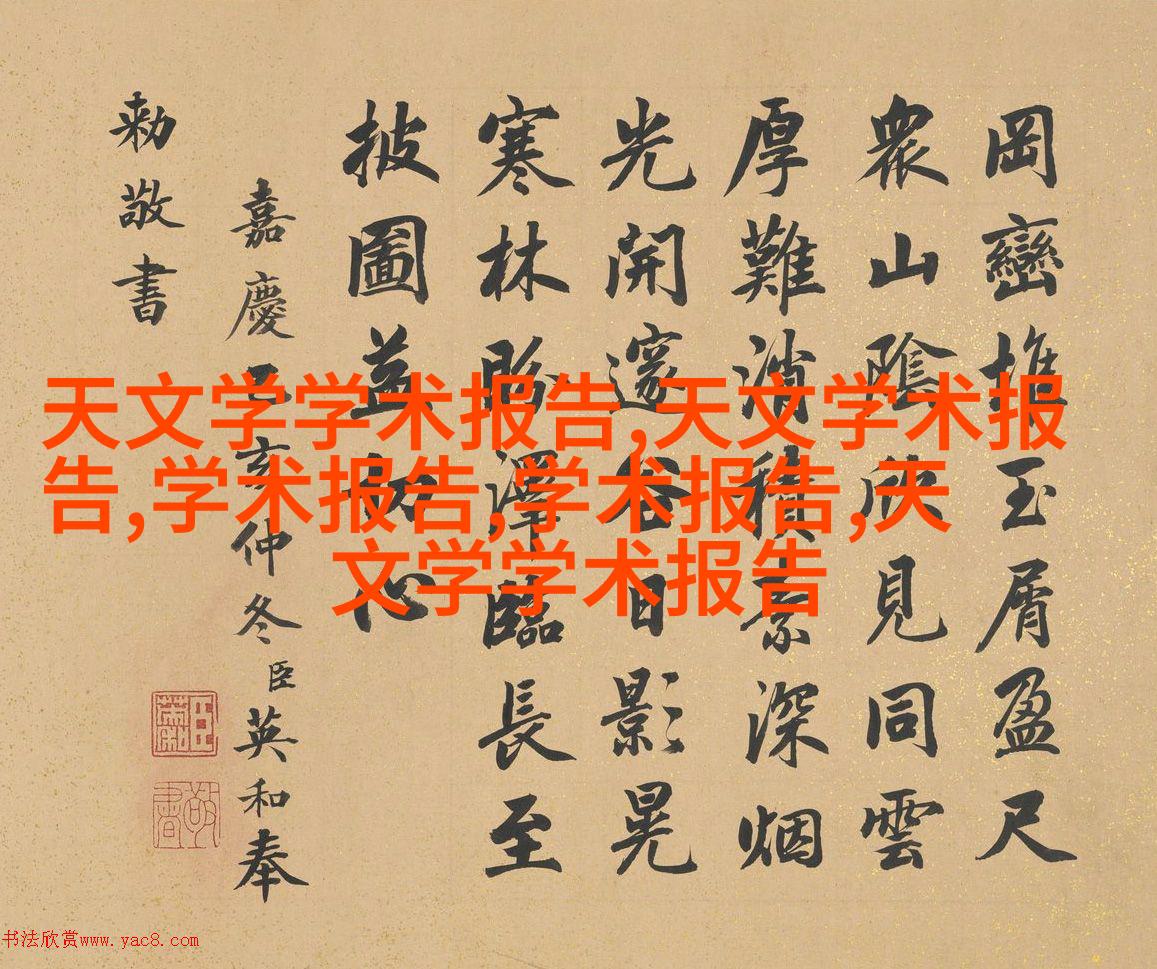 岡巒堆玉屑盈尺
衆山陰欣見同雲
厚難消積素深烟
光開邃谷日影晃
寒林盼澤臨長至
披圖益切心
嘉慶乙亥仲冬臣英和奉
勅敬書
敬書
天文学学术报告,天文学术报
告,学术报告,学术报告,天
文学学术报告
书法欣赏www.yac8.com